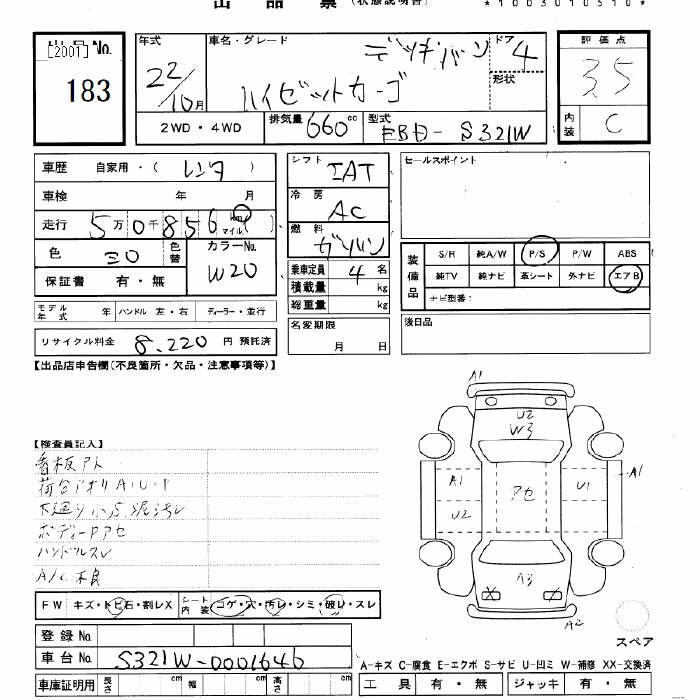 出品票 (状態説明書)
*1003010510*
出品No.
[2001]
183
年式
22/10月
車名・グレード
デッキバン
ハイゼットカーゴ
ドア 4
形状
2WD・4WD
排気量 660cc
型式 EBD-S321W
評価点
3.5
内装 C
車歴 自家用・(レンタ)
車検 年 月
走行 5万0千856 km マイル
色 シロ
色替
カラーNo. W20
保証書 有・無
モデル年式 年 ハンドル 左・右 ディーラー・並行
リサイクル料金 8,220 円 預託済
シフト IAT
冷房 AC
燃料 ガソリン
乗車定員 4 名
積載量 kg
総重量 kg
名変期限 月 日
セールスポイント
装備品
S/R 純A/W P/S P/W ABS
純TV 純ナビ 革シート 外ナビ エアB
ナビ型番:
後日品
【出品店申告欄(不良箇所・欠品・注意事項等)】
【検査員記入】
看板アト
荷台アオリA・U・P
下廻り小S 泥汚レ
ボディーPアセ
ハンドルスレ
A/C不良
A1
U2
W3
A1
U2
アセ
U1
A1
A3
A2
スペア
FW キズ・トビ石・割レX
シート内装 コゲ・穴・汚レ・シミ・破レ・スレ
登録No.
車台No. S321W-0001646
車庫証明用 長さ cm 幅 cm 高さ cm
A-キズ C-腐食 E-エクボ S-サビ U-凹ミ W-補修 XX-交換済
工具 有・無 ジャッキ 有・無